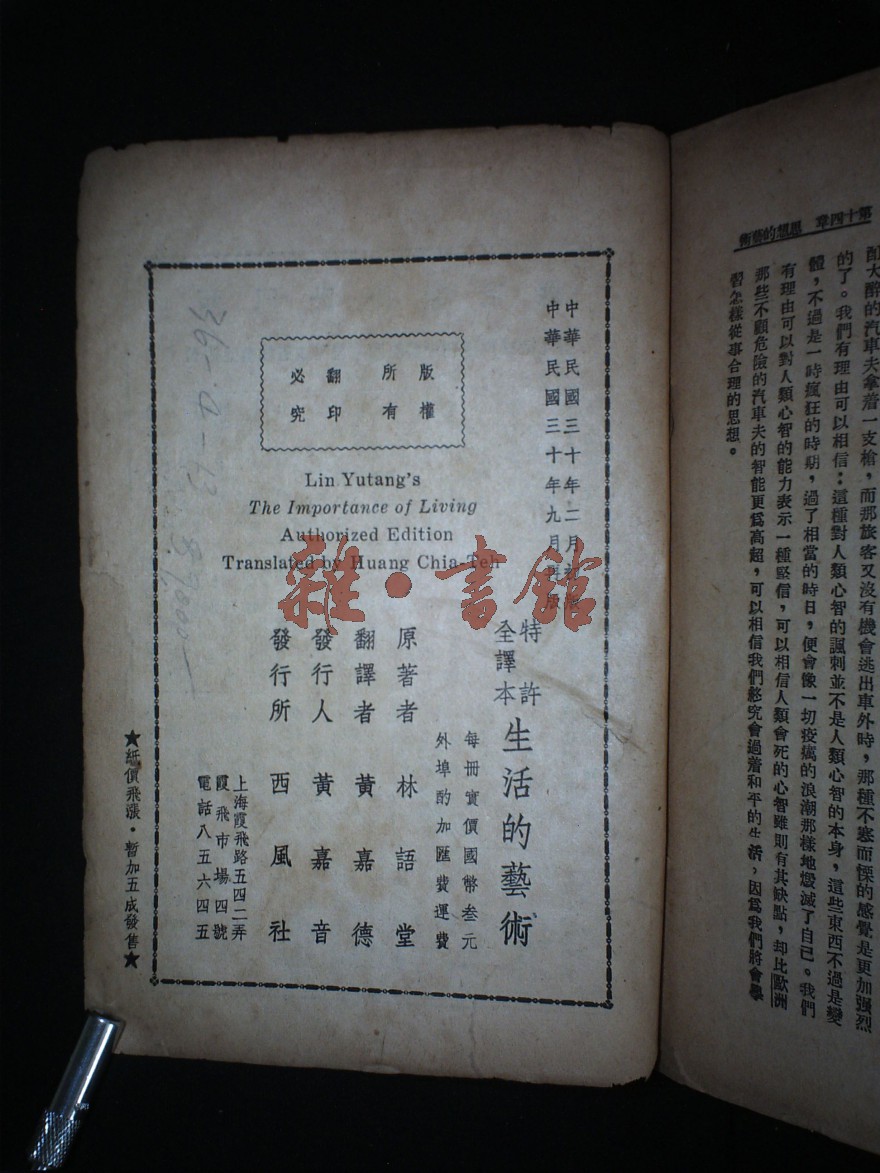 第十四章 思想的藝術
酊大醉的汽車夫拿着一支槍，而那旅客又沒有機會逃出車外時，那種不寒而慄的感覺是更加强烈
的了。我們有理由可以相信：這種對人類心智的諷刺並不是人類心智的本身，這些東西不過是變
體，不過是一時瘋狂的時期，過了相當的時日，便會像一切疫癘的浪潮那樣地燬滅了自己。我們
有理由可以對人類心智的能力表示一種堅信，可以相信人類會死的心智雖則有其缺點，却比歐洲
那些不顧危險的汽車夫的智能更爲高超，可以相信我們終究會過着和平的生活，因爲我們將會學
習怎樣從事合理的思想。
中華民國三十年二月初版
中華民國三十年九月再版
版權
所有
翻印
必究
Lin Yutang's
The Importance of Living
Authorized Edition
Translated by Huang Chia-Teh
特許
全譯本
生活的藝術
每冊實價國幣叁元
外埠酌加匯費運費
原著者 林語堂
翻譯者 黃嘉德
發行人 黃嘉音
發行所 西風社
上海霞飛路五四二弄
霞飛市場四號
電話八五六四五
★紙價飛漲·暫加五成發售★
雜·書館